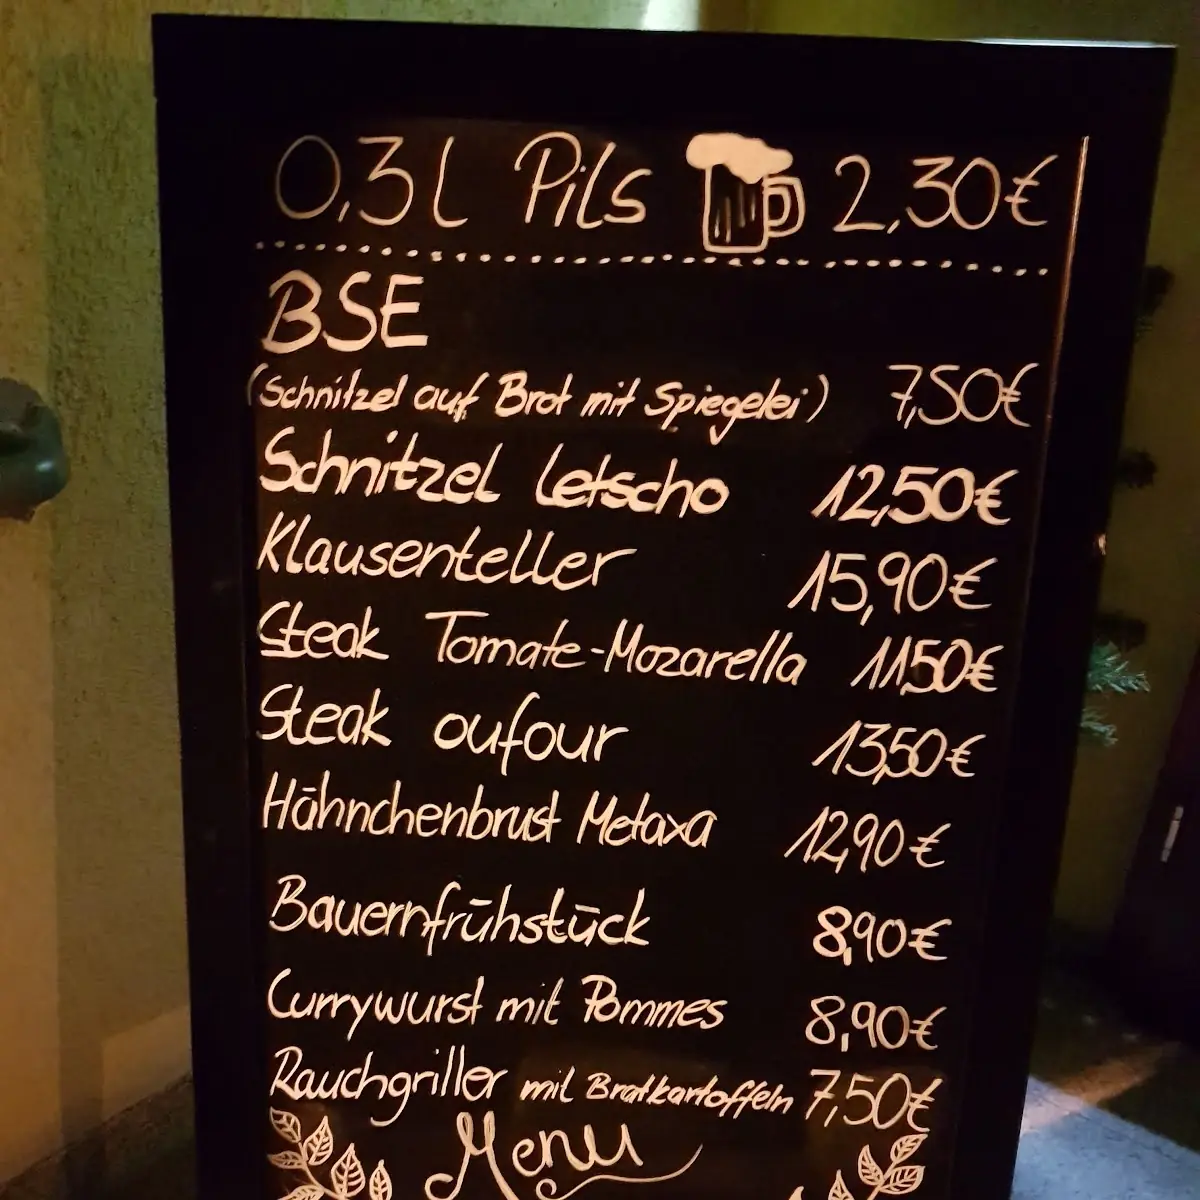 0,3l Pils 2,30€
BSE
(Schnitzel auf Brot mit Spiegelei) 7,50€
Schnitzel Letscho 12,50€
Klausenteller 15,90€
Steak Tomate-Mozarella 11,50€
Steak oufour 13,50€
Hähnchenbrust Metaxa 12,90€
Bauernfrühstück 8,90€
Currywurst mit Pommes 8,90€
Rauchgriller mit Bratkartoffeln 7,50€
Menu